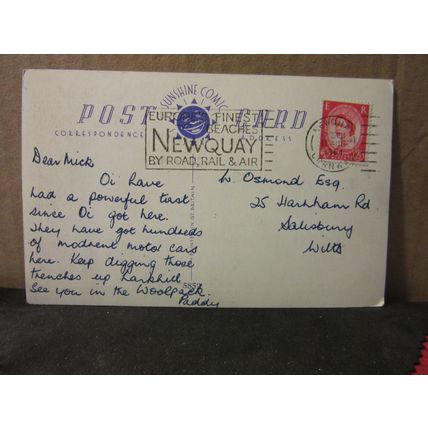 POST CARD
SUNSHINE COMIC
CORRESPONDENCE
ADDRESS
EUROPE'S FINEST
BEACHES
NEWQUAY
BY ROAD, RAIL & AIR
E R
NEWQUAY
CORNWALL
Dear Mick
Oi have
had a powerful tirst
since Oi got here.
They have got hundreds
of modrent motor cars
here. Keep digging those
trenches up Larkhill
See you in the Woolpack.
Paddy
5855
W. Osmond Esq.
25 Harnham Rd
Salisbury
Wilts